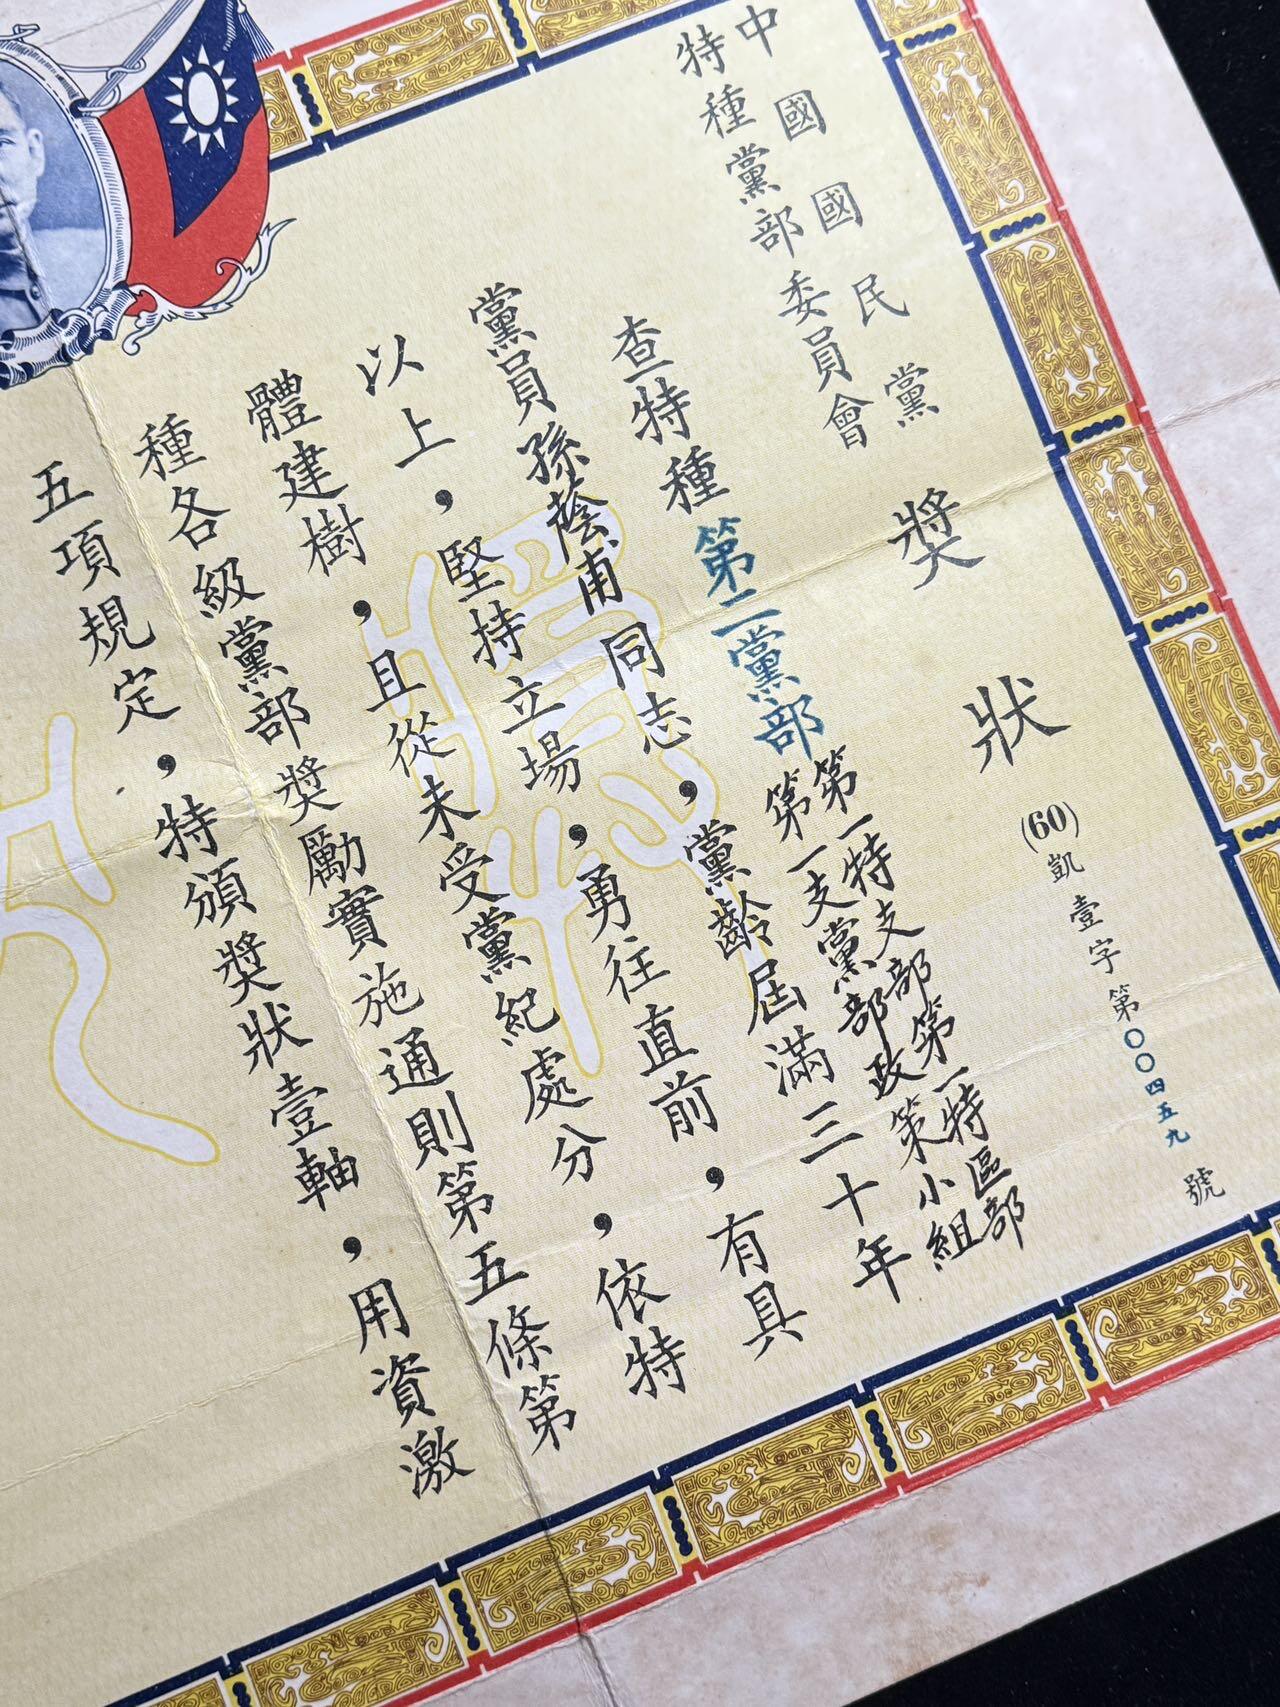 中國國民黨
特種黨部委員會
獎狀
(60)凱壹字第〇〇四五九號
查特種第二黨部
第一特支部第一特區部
第一支黨部政策小組
黨員孫蔭甫同志，黨齡屆滿三十年
以上，堅持立場，勇往直前，有具
體建樹，且從未受黨紀處分，依特
種各級黨部獎勵實施通則第五條第
五項規定，特頒獎狀壹軸，用資激